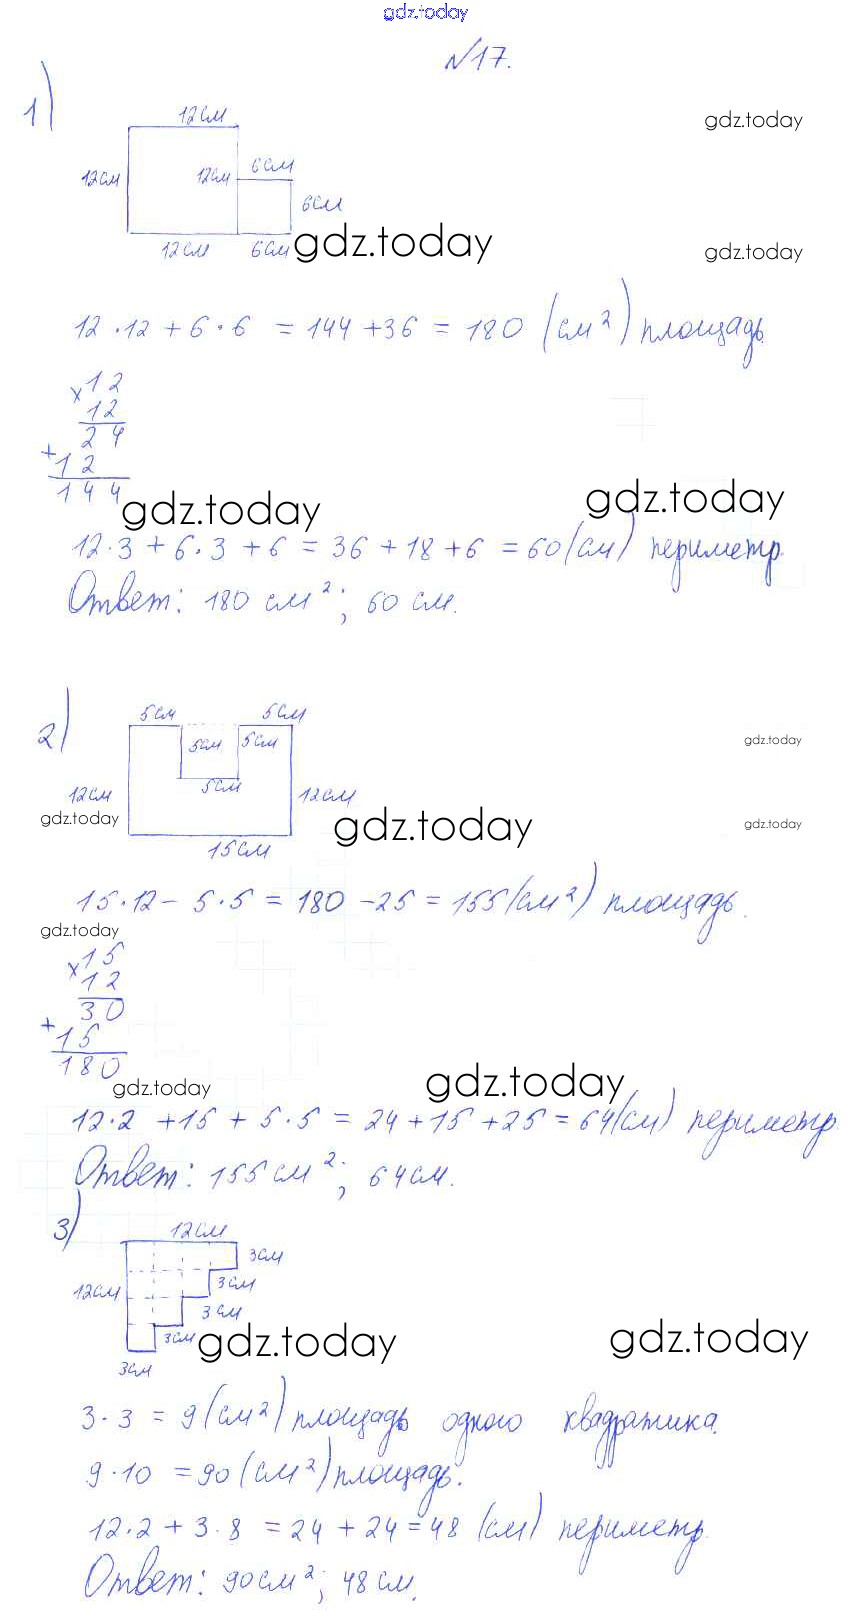 gdz.today
№17.
1)
12см
gdz.today
12см 12см 6см
6см
12см 6см gdz.today gdz.today
12·12+6·6 = 144+36 = 180 (см²) площадь.
×12
12
24
+12
144 gdz.today gdz.today
12·3+6·3+6 = 36+18+6 = 60(см) периметр.
Ответ: 180 см²; 60 см.
2)
5см 5см
5см 5см gdz.today
5см
12см 12см
gdz.today gdz.today gdz.today
15см
15·12- 5·5 = 180 -25 = 155(см²) площадь.
gdz.today
×15
12
30
+15
180
gdz.today gdz.today
12·2 +15 + 5·5 = 24+15+25 = 64(см) периметр.
Ответ: 155см²; 64см.
3)
12см
3см
12см 3см
3см
3см gdz.today gdz.today
3см
3·3 = 9(см²) площадь одного квадратика.
9·10 = 90(см²) площадь.
12·2+3·8 = 24+24=48 (см) периметр.
Ответ: 90см²; 48см.